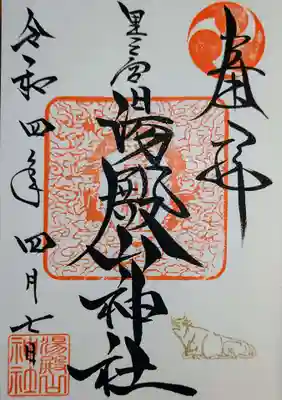 奉拝
里之宮
湯殿山神社
令和四年四月七日
湯殿山
神社